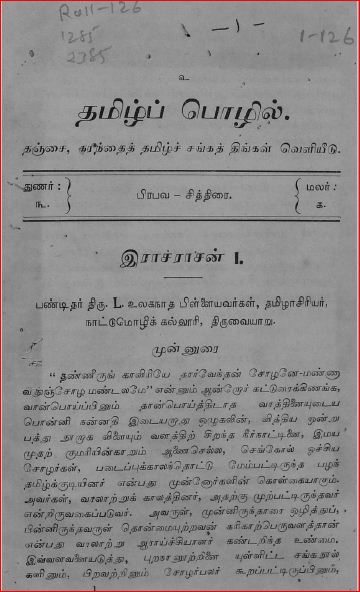 Roll-126
1285
2385
-1-
1-126
உ
தமிழ்ப் பொழில்.
தஞ்சை, கரந்தைத் தமிழ்ச் சங்கத் திங்கள் வெளியீடு.
துணர் :
௩.
பிரபவ – சித்திரை.
மலர் :
௧.
இராச்ராசன் I.
பண்டிதர் திரு. L. உலகநாத பிள்ளையவர்கள், தமிழாசிரியர்,
நாட்டுமொழிக் கல்லூரி, திருவையாறு.
முன்னுரை
“தண்ணீருங் காவிரியே தார்வேந்தன் சோழனே-மண்ணா
வதுஞ்சோழ மண்டலமே” என்னும் ஆன்றோர் கட்டுரைக்கிணங்க,
வான்பொய்ப்பினும் தான்பொய்த்திடாத வாத்தினையுடைய
பொன்னி நன்னதி இடையறாது ஒழுகலின், வித்திய ஒன்று
பத்து நூறாக விளையும் வளத்திற் சிறந்த நீர்நாட்டினை, இமய
முதற் குமரியின்காறும் ஆணைசெல்ல, செங்கோல் ஓச்சிய
சோழர்கள், படைப்புக்காலந்தொட்டு மேம்பட்டிருந்த பழந்
தமிழ்க்குடியினர் என்பது முன்னோர்களின் கொள்கையாகும்.
அவர்கள், வரலாற்றுக் காலத்தினர், அதற்கு முற்பட்டிருந்தவர்
என்றிருவகைப்படுவர். அவருள், முன்னிருந்தாரை ஒழித்துப்,
பின்னிருந்தவருள் தொன்மையுற்றவன் கரிகாற்பெருவளத்தான்
என்பது வரலாற்று ஆராய்ச்சியாளர் கண்டறிந்த உண்மை.
இவ்வளவனையடுத்து, புறநானூற்றினை யுள்ளிட்ட சங்கநூல்
களினும், பிறவற்றினும் சோழர்பலர் கூறப்பட்டிருப்பினும்,